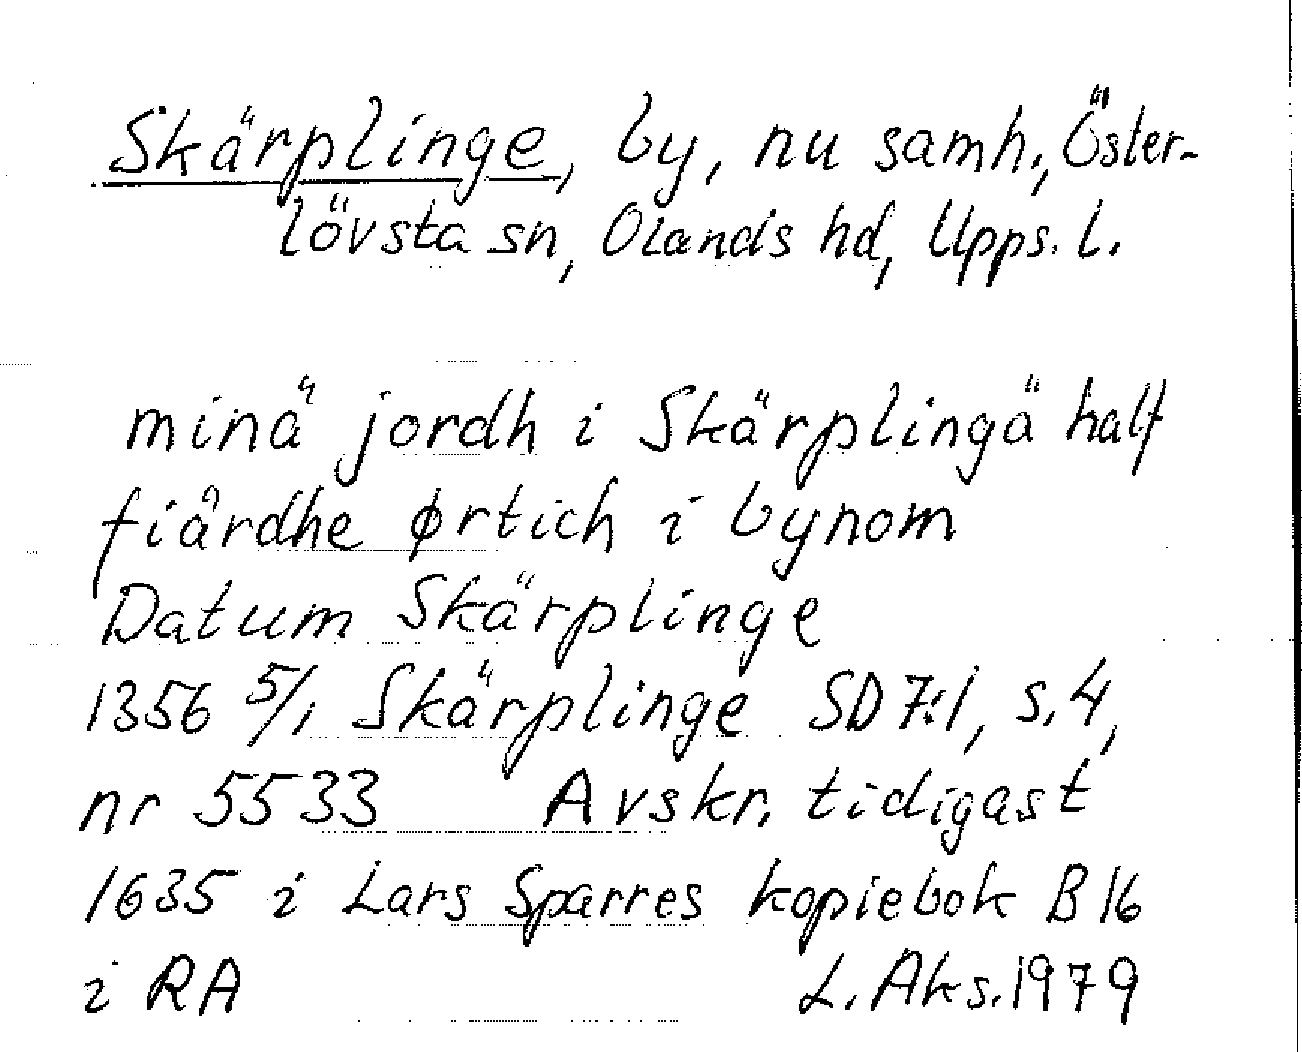 Skärplinge, by, nu samh., Öster-
lövsta sn, Olands hd, Upps. l.
minä jordh i Skärplingä half
fiärdhe ørtich i bynom
Datum Skärplinge
1356 5/1 Skärplinge SD 7:1, s. 4,
nr 5533 Avskr. tidigast
1635 i Lars Sparres kopiebok B 16
i RA L. Aks. 1979